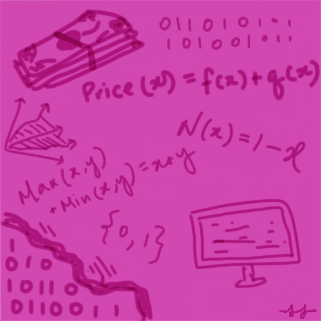 0110101
1010010
Price(x) = f(x) + q(x)
N(x) = 1 - x
Max(x,y)
+ Min(x,y) = x + y
{0,1}
1
010
10110
0110011